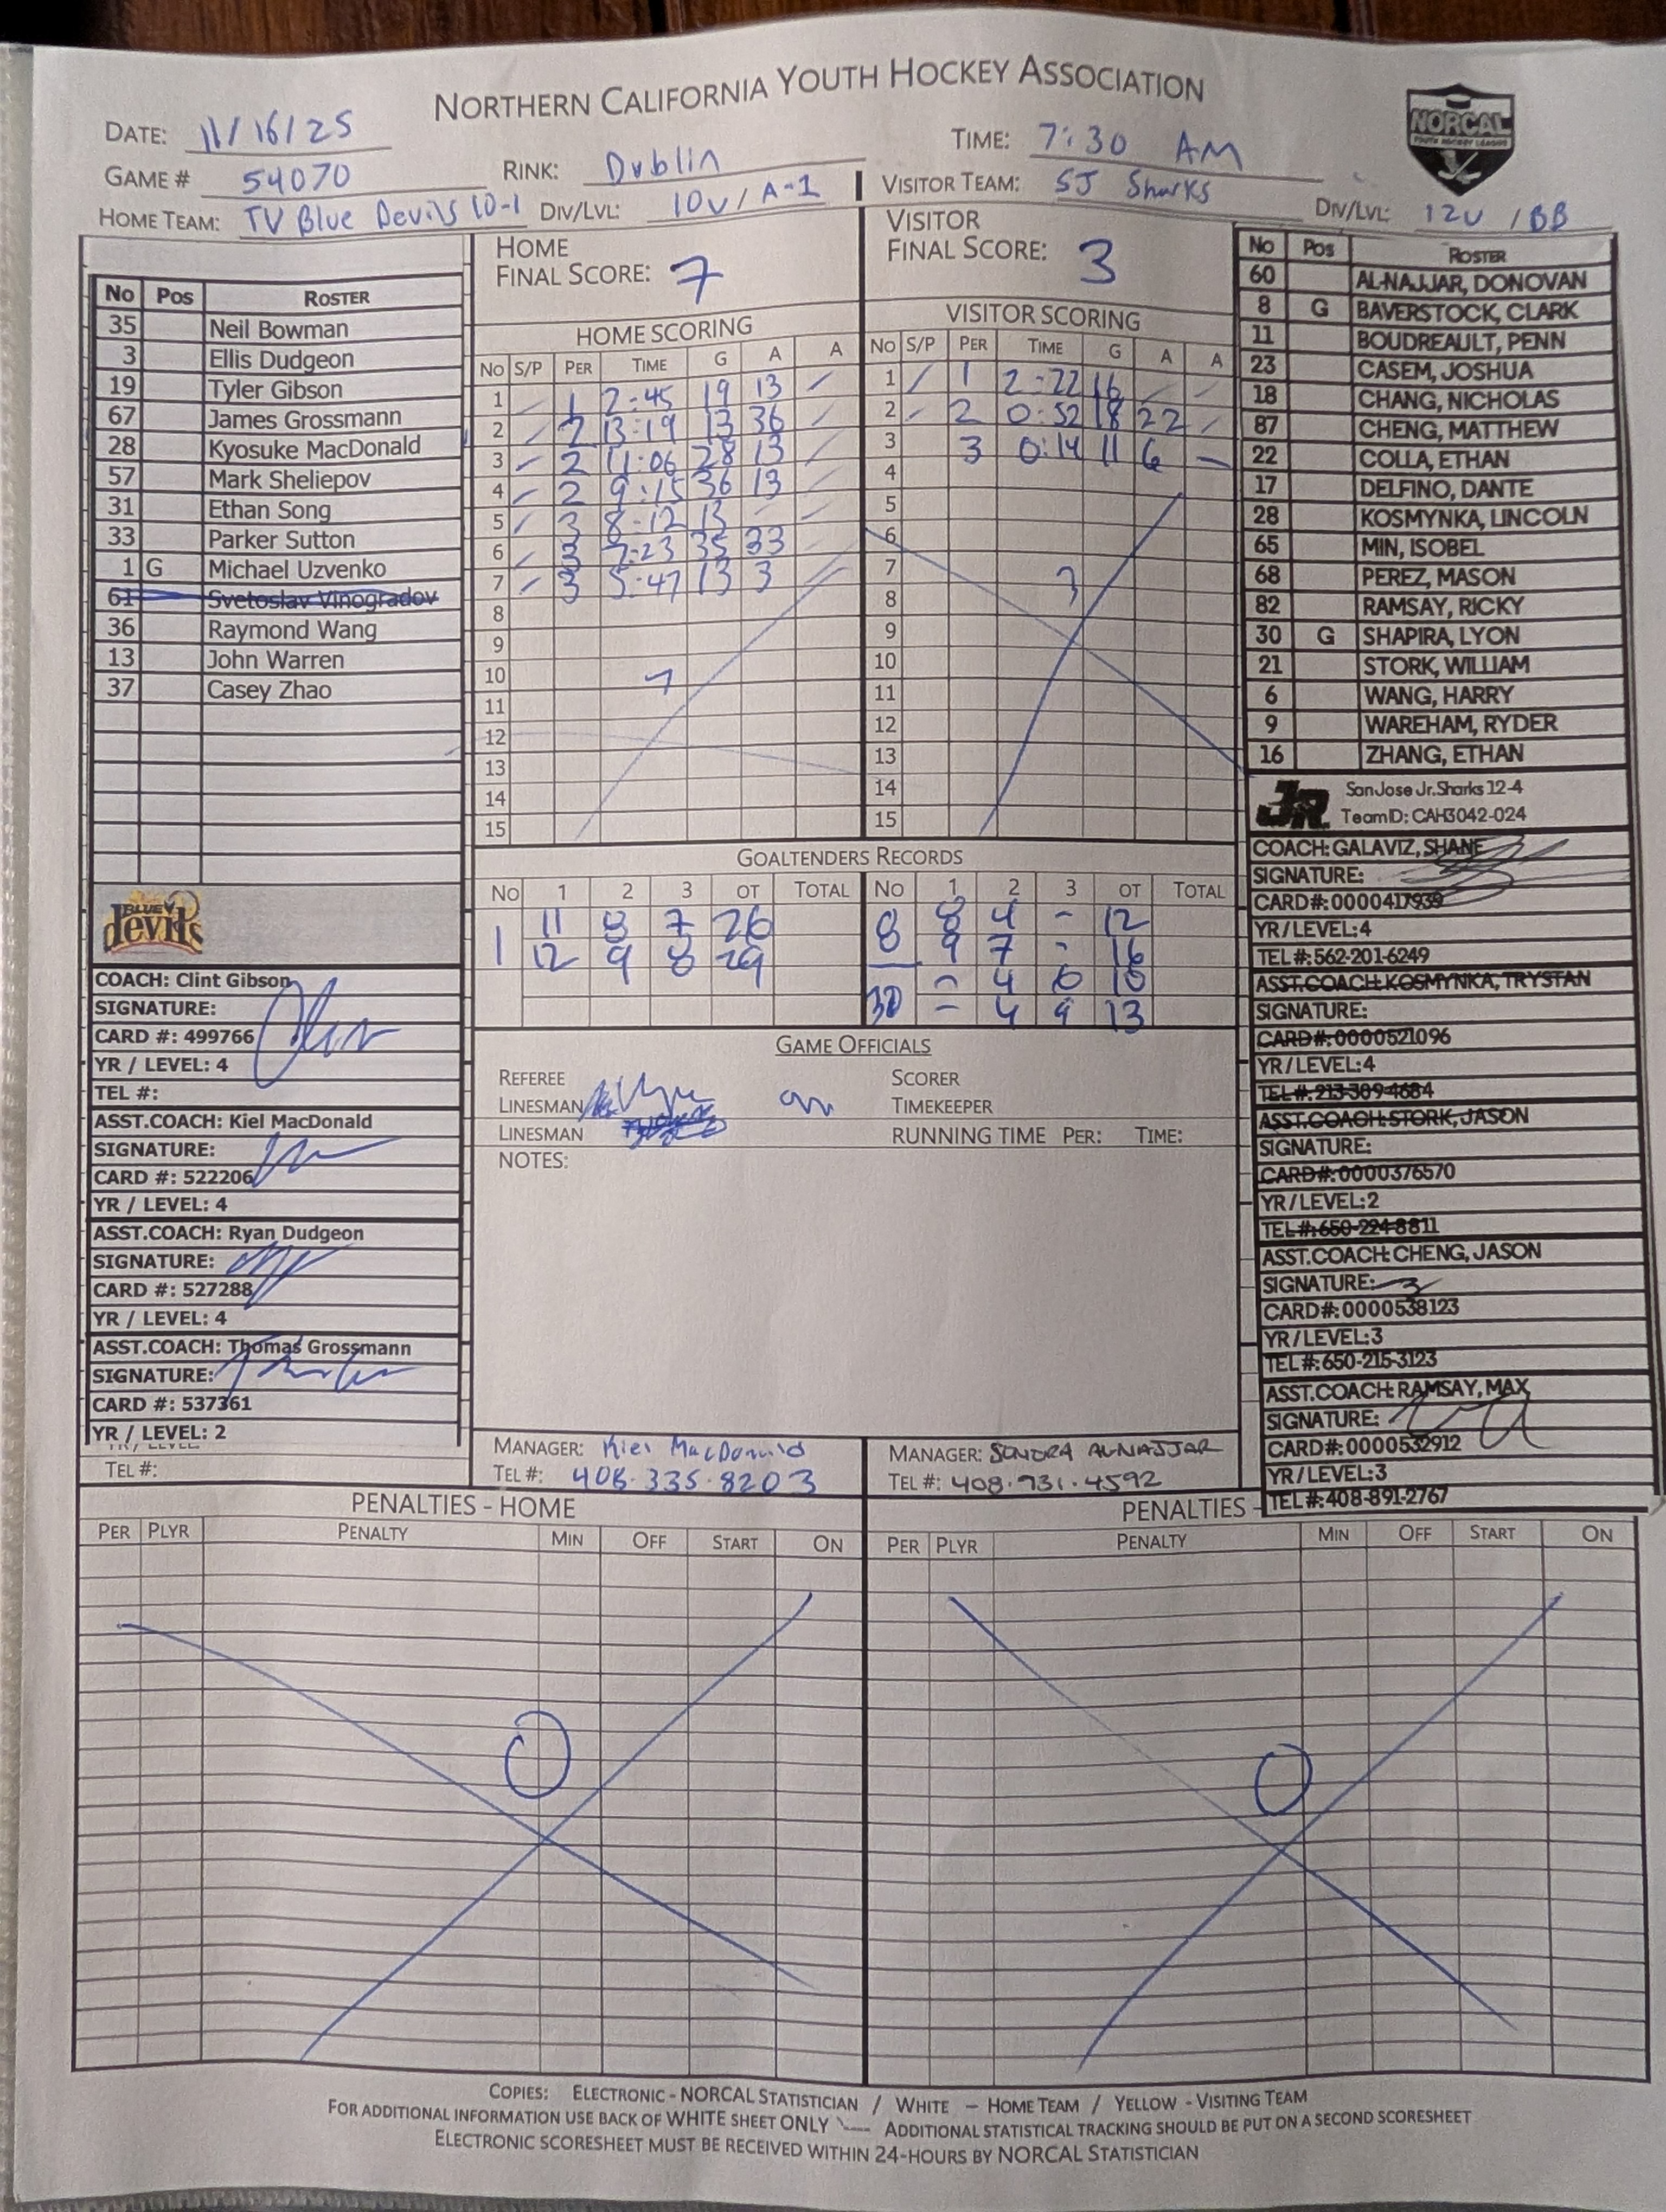 NORTHERN CALIFORNIA YOUTH HOCKEY ASSOCIATION
NORCAL
DATE: 11/16/25
TIME: 7:30 AM
GAME # 54070
RINK: Dublin
HOME TEAM: TV Blue Devils 10-1
DIV/LVL: 10U/A-1
VISITOR TEAM: SJ Sharks
DIV/LVL: 12U /BB
HOME
FINAL SCORE: 7
VISITOR
FINAL SCORE: 3
No Pos ROSTER
35 Neil Bowman
3 Ellis Dudgeon
19 Tyler Gibson
67 James Grossmann
28 Kyosuke MacDonald
57 Mark Sheliepov
31 Ethan Song
33 Parker Sutton
1 G Michael Uzvenko
61 Svetoslav Vinogradov
36 Raymond Wang
13 John Warren
37 Casey Zhao
BLUE
devils
COACH: Clint Gibson
SIGNATURE:
CARD #: 499766
YR / LEVEL: 4
TEL #:
ASST.COACH: Kiel MacDonald
SIGNATURE:
CARD #: 522206
YR / LEVEL: 4
ASST.COACH: Ryan Dudgeon
SIGNATURE:
CARD #: 527288
YR / LEVEL: 4
ASST.COACH: Thomas Grossmann
SIGNATURE:
CARD #: 537361
YR / LEVEL: 2
TEL #:
HOME SCORING
No S/P PER TIME G A A
1 / 1 2:45 19 13 /
2 / 2 13:19 13 36 /
3 / 2 11:06 28 13 /
4 / 2 9:15 36 13 /
5 / 3 8:12 13 / /
6 / 3 7:23 35 33
7 / 3 5:47 13 3
8
9
10 7
11
12
13
14
15
VISITOR SCORING
No S/P PER TIME G A A
1 / 1 2:22 16 / /
2 / 2 0:52 18 22 /
3 3 0:14 11 6 -
4
5
6
7 3
8
9
10
11
12
13
14
15
GOALTENDERS RECORDS
No 1 2 3 OT TOTAL No 1 2 3 OT TOTAL
1 11 8 7 26 8 8 4 - 12
12 9 8 29 9 7 - 16
- 4 6 10
30 - 4 9 13
GAME OFFICIALS
REFEREE SCORER
LINESMAN TIMEKEEPER
LINESMAN RUNNING TIME PER: TIME:
NOTES:
MANAGER: Kiel MacDonald
TEL #: 408.335.8203
MANAGER: SONORA AL-NAJJAR
TEL #: 408.931.4592
No Pos ROSTER
60 AL-NAJJAR, DONOVAN
8 G BAVERSTOCK, CLARK
11 BOUDREAULT, PENN
23 CASEM, JOSHUA
18 CHANG, NICHOLAS
87 CHENG, MATTHEW
22 COLLA, ETHAN
17 DELFINO, DANTE
28 KOSMYNKA, LINCOLN
65 MIN, ISOBEL
68 PEREZ, MASON
82 RAMSAY, RICKY
30 G SHAPIRA, LYON
21 STORK, WILLIAM
6 WANG, HARRY
9 WAREHAM, RYDER
16 ZHANG, ETHAN
JR San Jose Jr. Sharks 12-4
Team ID: CAH3042-024
COACH: GALAVIZ, SHANE
SIGNATURE:
CARD#: 0000417939
YR/LEVEL: 4
TEL#: 562-201-6249
ASST.COACH: KOSMYNKA, TRYSTAN
SIGNATURE:
CARD#: 0000521096
YR/LEVEL: 4
TEL#: 213-309-4684
ASST.COACH: STORK, JASON
SIGNATURE:
CARD#: 0000376570
YR/LEVEL: 2
TEL#: 650-224-8811
ASST.COACH: CHENG, JASON
SIGNATURE:
CARD#: 0000538123
YR/LEVEL: 3
TEL#: 650-215-3123
ASST.COACH: RAMSAY, MAX
SIGNATURE:
CARD#: 0000532912
YR/LEVEL: 3
TEL#: 408-891-2767
PENALTIES - HOME
PER PLYR PENALTY MIN OFF START ON
0
PENALTIES -
PER PLYR PENALTY MIN OFF START ON
0
COPIES: ELECTRONIC - NORCAL STATISTICIAN / WHITE – HOME TEAM / YELLOW - VISITING TEAM
FOR ADDITIONAL INFORMATION USE BACK OF WHITE SHEET ONLY ADDITIONAL STATISTICAL TRACKING SHOULD BE PUT ON A SECOND SCORESHEET
ELECTRONIC SCORESHEET MUST BE RECEIVED WITHIN 24-HOURS BY NORCAL STATISTICIAN